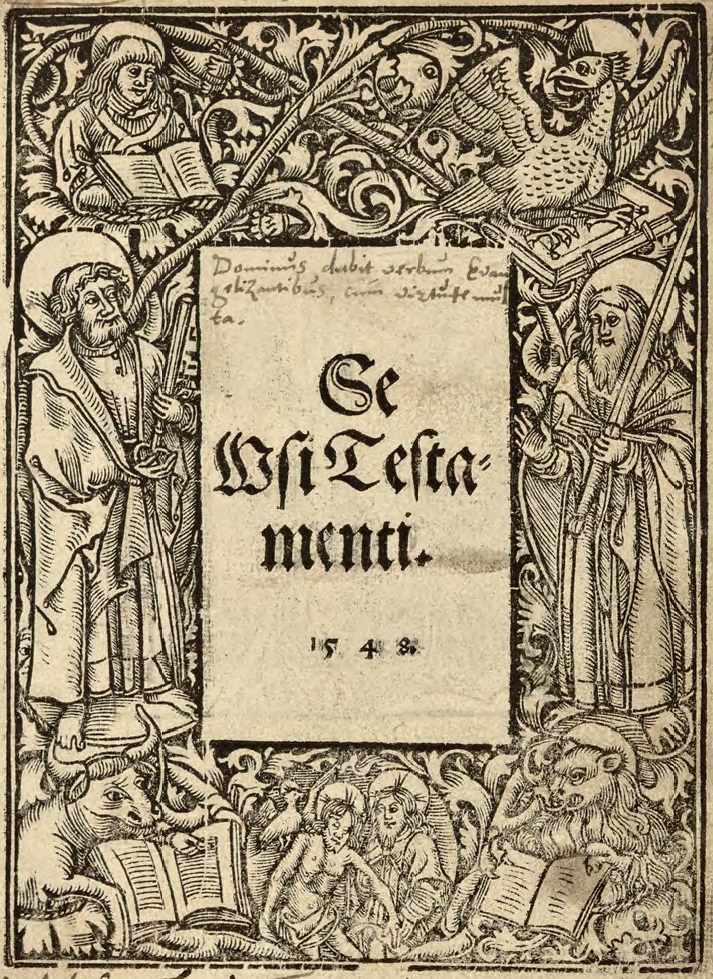 Dominus dabit verbum Evan
gelizantibus, cum virtute mul
ta.
Se
Wſi Teſta⸗
menti.
1548.